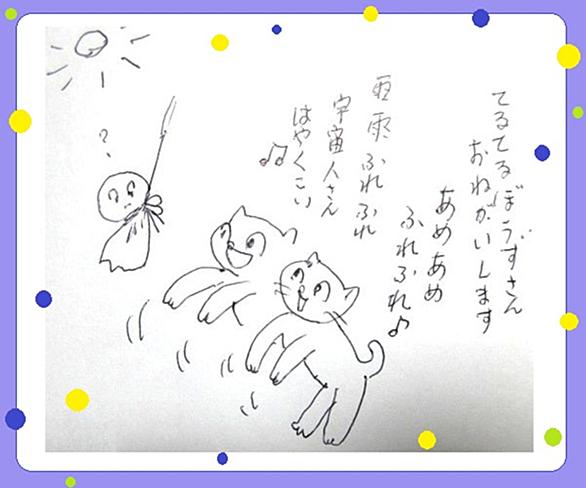 てるてるぼうずさん
おねがいします
あめあめ
ふれふれ♪
雨雨ふれふれ
宇宙人さん
はやくこい
♫
?